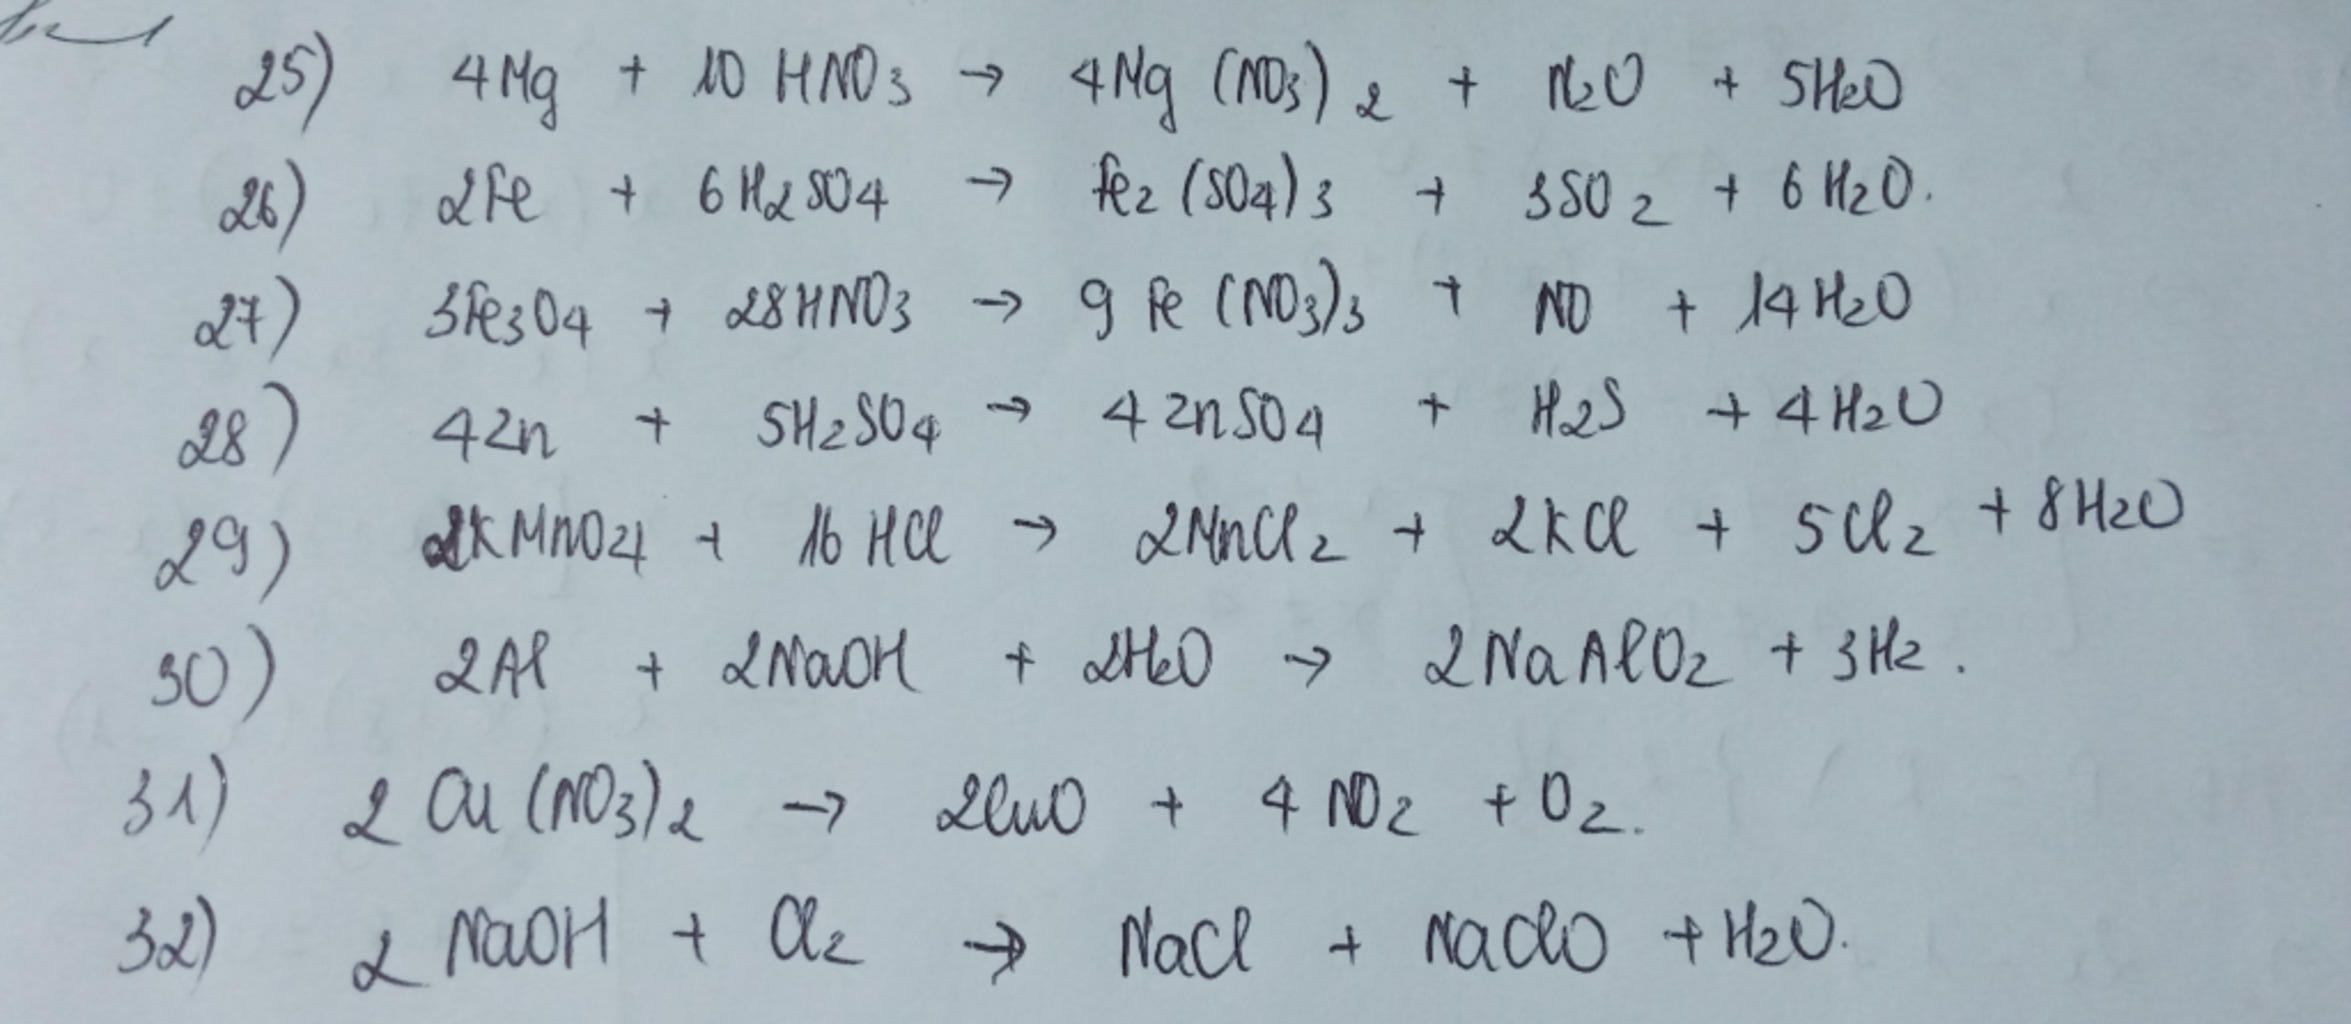 25) 4Mg + 10 HNO3 → 4Mg (NO3)2 + N2O + 5H2O
26) 2Fe + 6H2SO4 → Fe2(SO4)3 + 3SO2 + 6H2O.
27) 3Fe3O4 + 28HNO3 → 9Fe(NO3)3 + NO + 14H2O
28) 4Zn + 5H2SO4 → 4ZnSO4 + H2S + 4H2O
29) 2KMnO4 + 16HCl → 2MnCl2 + 2KCl + 5Cl2 + 8H2O
30) 2Al + 2NaOH + 2H2O → 2NaAlO2 + 3H2.
31) 2Cu(NO3)2 → 2CuO + 4NO2 + O2.
32) 2NaOH + Cl2 → NaCl + NaClO + H2O.